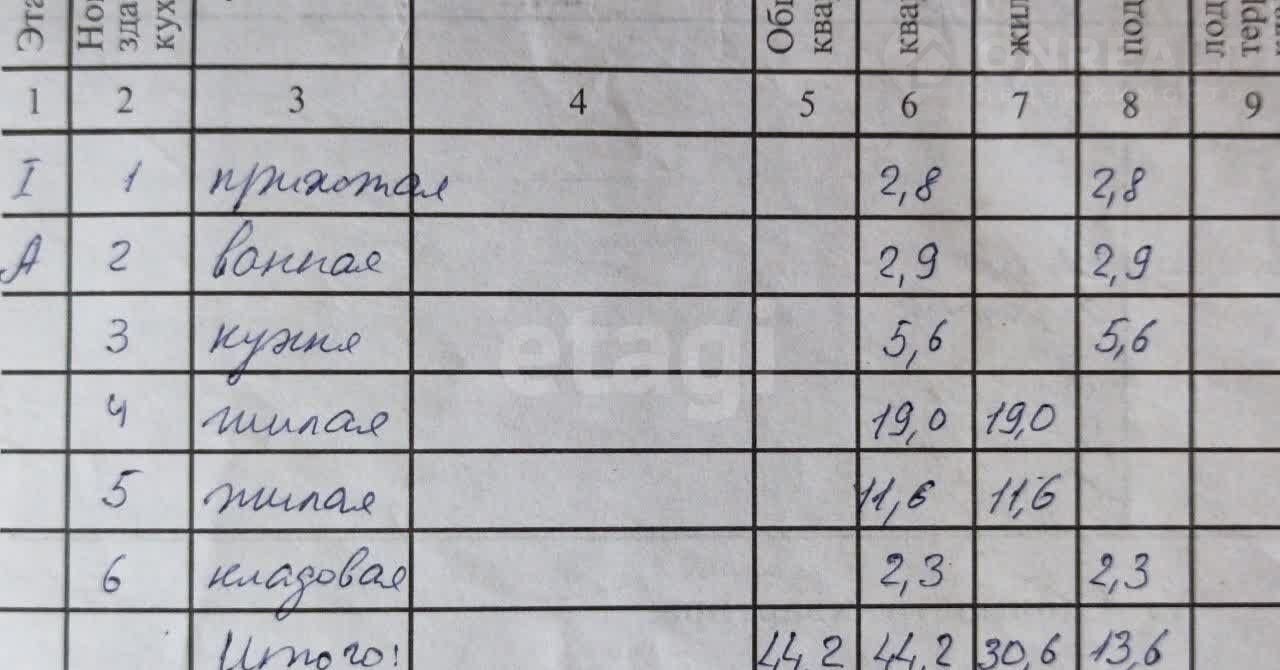 Эта
Но
зда
кух
Об
квар
квар
жил
под
лод
терр
ONREAL
недвижимость
1 2 3 4 5 6 7 8 9
I 1 прихожая 2,8 2,8
А 2 ванная 2,9 2,9
3 кухня 5,6 5,6
etagi
4 жилая 19,0 19,0
5 жилая 11,6 11,6
6 кладовая 2,3 2,3
Итого: 44,2 44,2 30,6 13,6